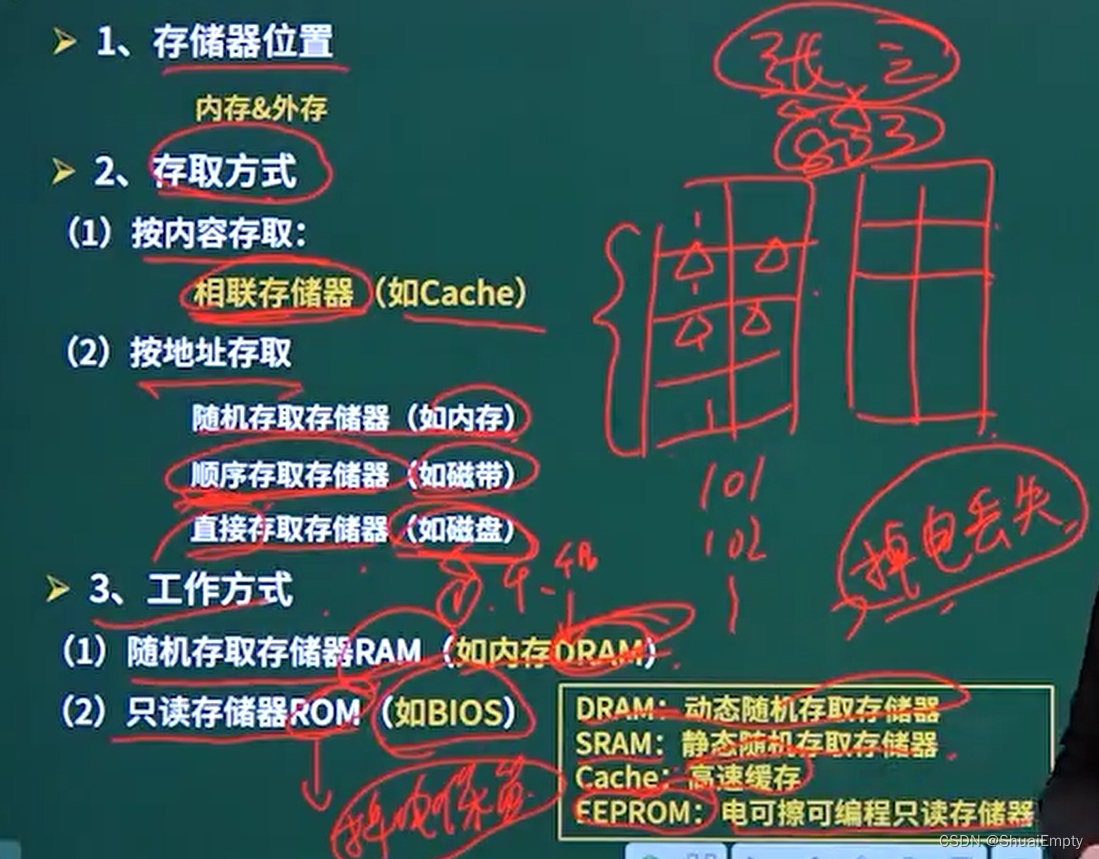 1、存储器位置
内存&外存
2、存取方式
（1）按内容存取：
相联存储器（如Cache）
（2）按地址存取
随机存取存储器（如内存）
顺序存取存储器（如磁带）
直接存取存储器（如磁盘）
3、工作方式
（1）随机存取存储器RAM（如内存DRAM）
（2）只读存储器ROM（如BIOS）
DRAM：动态随机存取存储器
SRAM：静态随机存取存储器
Cache：高速缓存
EEPROM：电可擦可编程只读存储器
张三
803
101
102
掉电丢失
CSDN @ShuaiEmpty